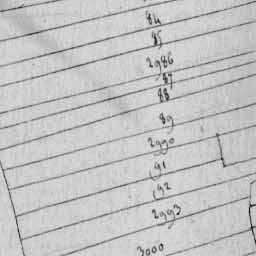 84
85
2986
87
88
89
2990
91
92
2993
3000